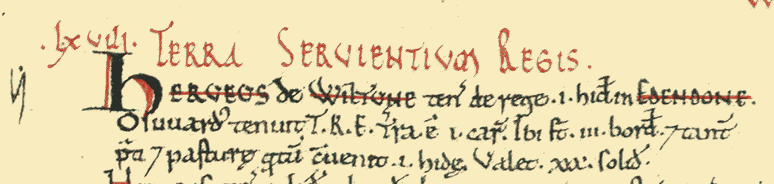 .lxviii. TERRA SERVIENTIUM REGIS.
HERVEUS de WILTUNE ten̄ de rege .i. hid̄ in EDENDONE.
Osuuard' tenuit T.R.E. T̄ra ē .i. car̄. Ibi st̄ .iii. bord̄ 7 tant̄
p̄ti 7 pasturę qtū c̄uenit .i. hidę. Valet .xxx. solid̄.